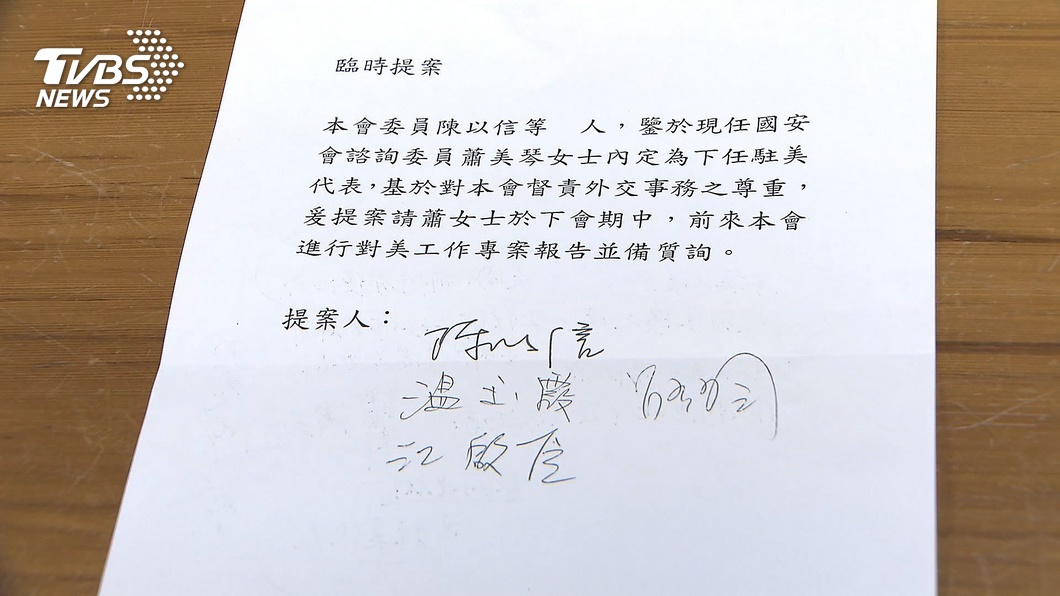 TVBS
NEWS
臨時提案
本會委員陳以信等　人，鑒於現任國安
會諮詢委員蕭美琴女士內定為下任駐美
代表，基於對本會督責外交事務之尊重，
爰提案請蕭女士於下會期中，前來本會
進行對美工作專案報告並備質詢。
提案人：
陳以信
溫玉霞
江啟臣